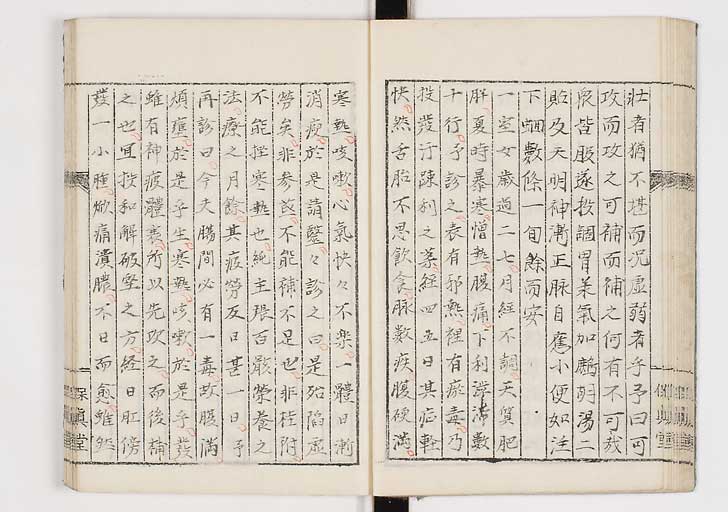 壯者猶不堪而況虛弱者乎予曰可
攻而攻之可補而補之何有不可哉
衆皆服遂投調胃承氣加鷓明湯二
貼及天明神漸正脉自舊小便如注
下蛔數條一旬餘而安
一室女歲過二七月經不調天質肥
胖夏時暴寒憎熱腹痛下利澁滯數
十行予診之表有邪熱裡有瘀毒乃
投發汗疎利之藥經四五日其症輕
快然舌胎不思飮食脉數疾腹硬滿
寒熱咳嗽心氣怏々不樂一體日漸
消瘦於是請鑿々診之曰是殆陷虛
勞矣非參茋不能補不足也非桂附
不能挫寒熱也純主張百骸榮養之
法療之月餘其疲勞反日甚一日予
再診曰今夫腸間必有一毒故腹滿
煩壅於是乎生寒熱咳嗽於是乎發
雖有神疲體裏所以先攻之而後補
之也宜投和解破堅之方經日肛傍
發一小腫焮痛潰膿不日而愈雖然
保眞堂